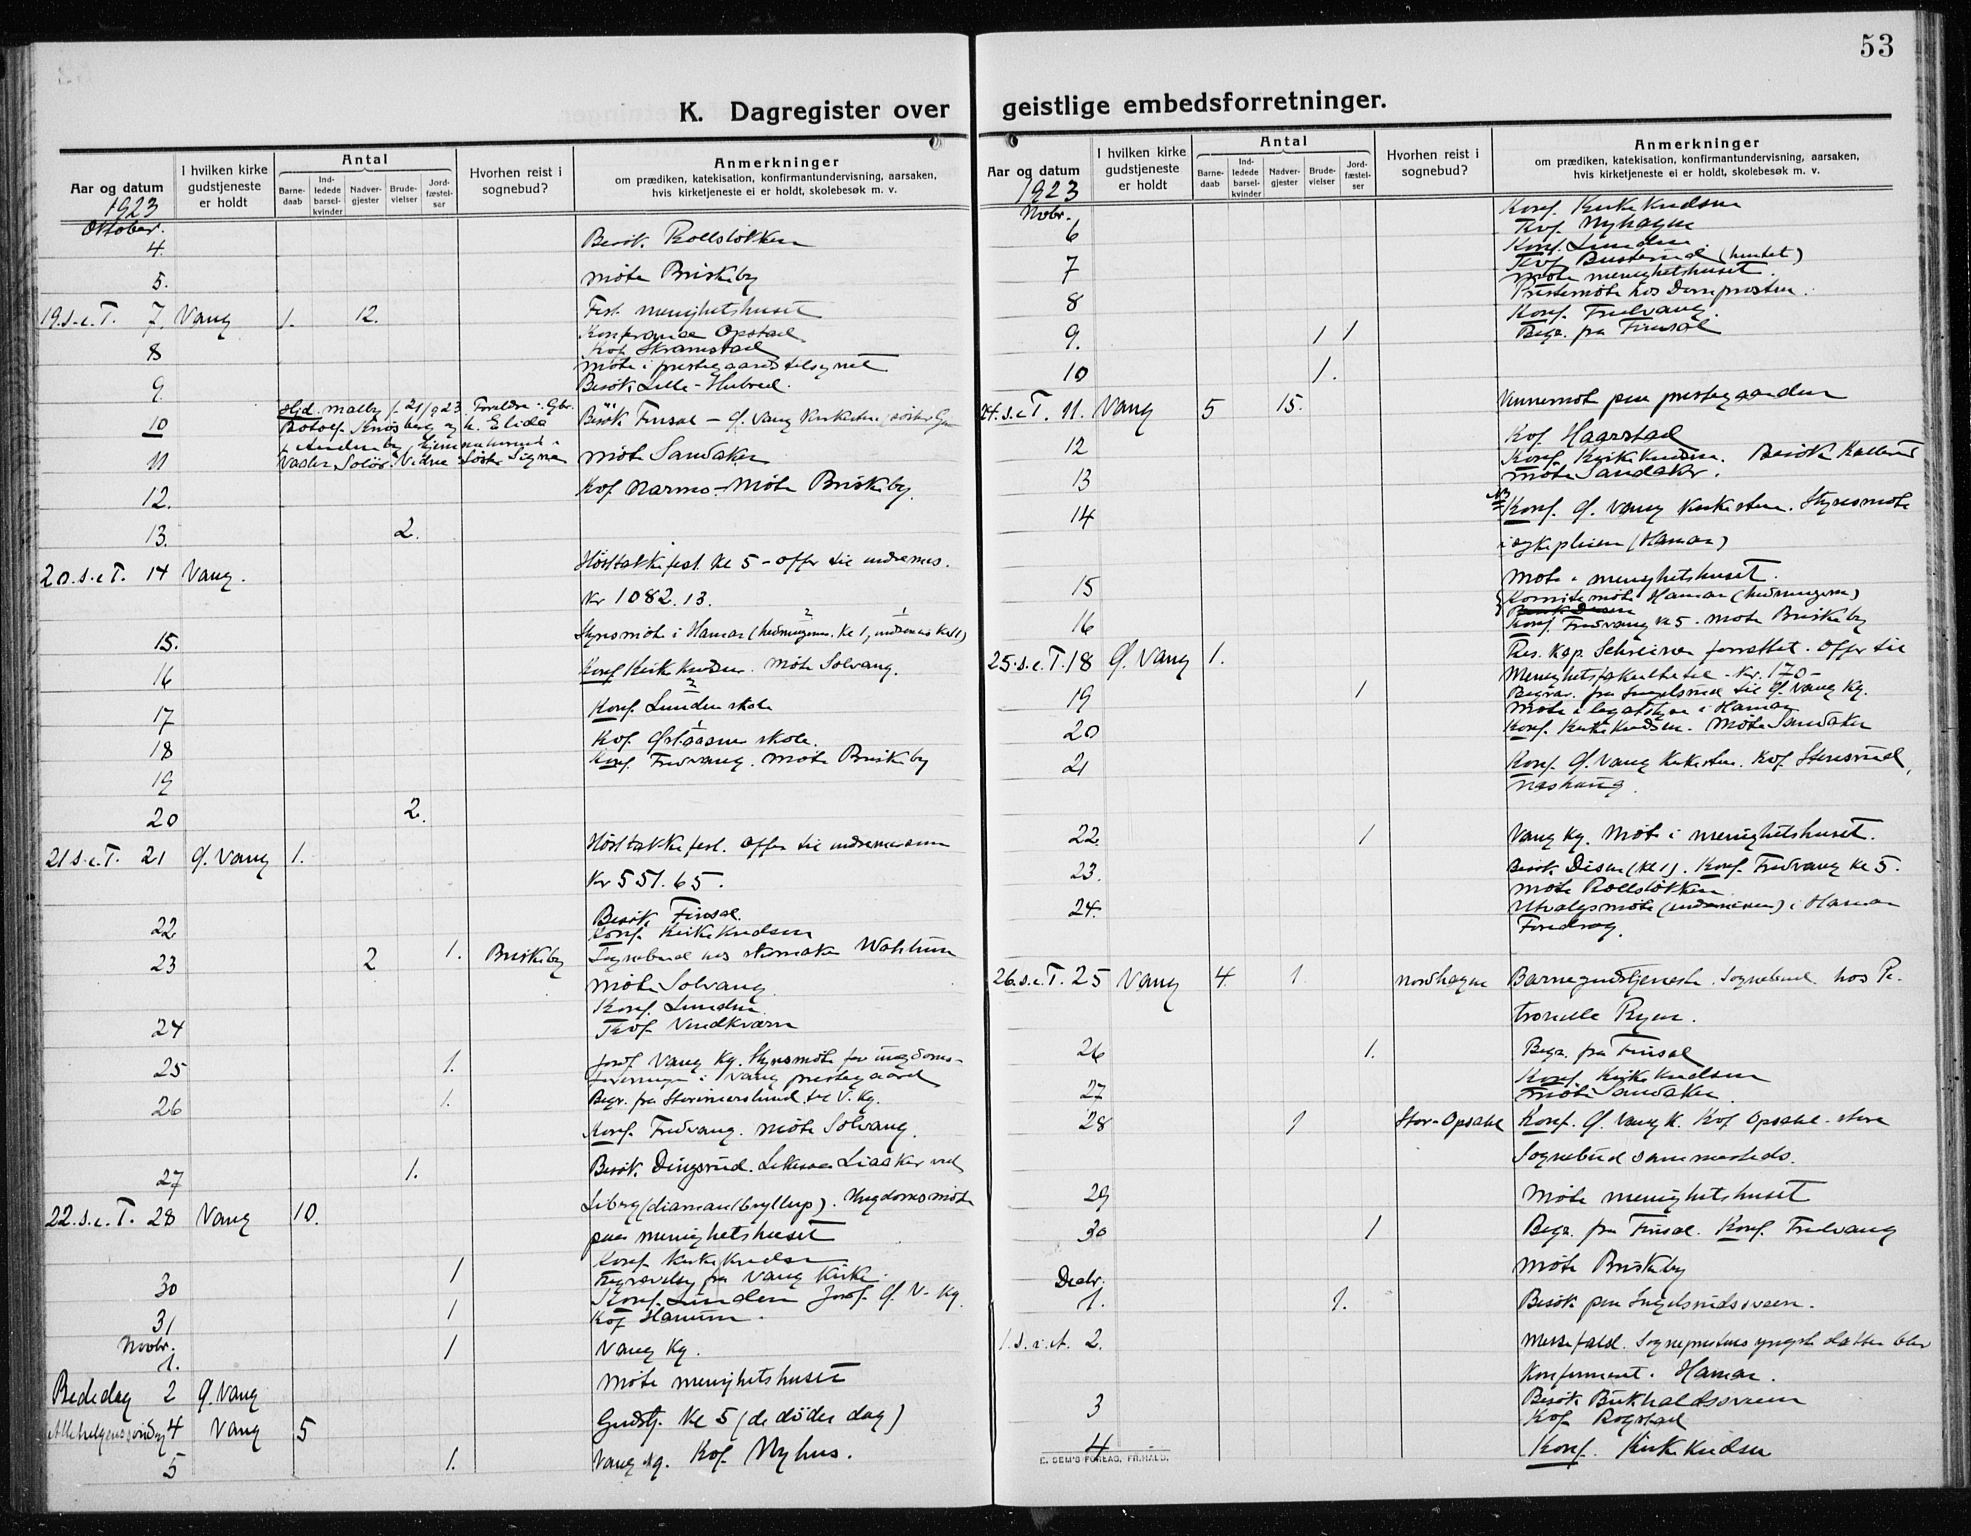 53
K. Dagregister over geistlige embedsforretninger.
Aar og datum
1923
I hvilken kirke gudstjeneste er holdt
Antal
Barne-daab
Ind-ledede barsel-kvinder
Nadver-gjester
Brude-vielser
Jord-fæstel-ser
Hvorhen reist i sognebud?
Anmerkninger
om prædiken, katekisation, konfirmantundervisning, aarsaken, hvis kirketjeneste ei er holdt, skolebesøk m. v.
Oktober.
4. Besøk Rollsløkken
5. Møte Briskeby
19.s.e.T. 7. Vang 1. 12. Fest menighetshuset
8 Opstad
Kof Skramstad
Møte i prestegaardstilsynet
9. Besøk Lille-Hubred.
10 Besøk Finsal - Ø. Vang
11 Møte Sandaker
12. Kof Narmo - Møte Briskeby.
13. 2.
20.s.e.T. 14 Vang. Høsttakkefest kl 5 - offer til indremis.
Kr 1082.13.
15. Styresmøte i Hamar
16 Konf Kirke Kudsen. Møte Solvang.
17 Konf. Lunden skole
18 Kof. Østaasen skole.
19 Konf. Fredvang. Møte Briskeby
20 2.
21 s.e.T. 21 Ø. Vang 1. Høsttakkefest. Offer til indremisionen
Kr 551.65.
22 Besøk Finsal.
Konf. Kirke Kudsen
23 2 1. Briskeby Sognebud hos
Møte Solvang
24 Konf. Lunden
Kof. Vindkværn
25 1. Jordf. Vang Kg. Styresmøte for ungdoms-
foreningen i Vang prestegaard
26 1. Begr. fra til V. Kg.
Konf. Fredvang. Møte Solvang.
27 1. Besøk Dingsrud.
22.s.e.T. 28 Vang 10. (diamantbryllup). Ungdomsmøte
paa menighetshuset
30 1 Konf Kirke Kudsen
Begravelse fra Vang Kirke.
31 1 Konf. Lunden Jordf. Ø. V. Kg.
Kof Hanum.
Novbr.
1. 1 Vang Kg.
Bededag 2 Ø. Vang Møte menighetshuset
Allehelgenssøndag 4 Vang 5 Gudstj. Kl 5 (de dødes dag)
5 1. Vang Kg. Kof Nyhus.
Aar og datum
1923
I hvilken kirke gudstjeneste er holdt
Antal
Barne-daab
Ind-ledede barsel-kvinder
Nadver-gjester
Brude-vielser
Jord-fæstel-ser
Hvorhen reist i sognebud?
Anmerkninger
om prædiken, katekisation, konfirmantundervisning, aarsaken, hvis kirketjeneste ei er holdt, skolebesøk m. v.
Novbr.
6 Konf. Kirke Kudsen
Kof Nyhagen
7 Konf. Lunden
Kof Busterud (hentet)
Møte menighetshuset.
8 Prestemøte hos Domprosten.
9. 1 1 Konf. Fredvang.
Begr. fra Finsal
10 1.
24.s.e.T. 11. Vang 5 15. paa prestegaarden
12 Kof. Haarstad
Konf. Kirke Kudsen. Besøk
13 Møte Sandaker.
14 Konf. Ø. Vang Kirkestuen. Styresmøte
i sykepleien (Hamar)
15 Møte i menighetshuset.
Komitemøte Hamar (hedningem)
16 Konf. Fredvang kl 5. Møte Briskeby
25.s.e.T. 18 Ø. Vang 1. Res. Kap. Schreiner forrettet. Offer til
Menighetsfakultetet. Kr. 170-
19 1 Begrav. fra Ingelsrud til Ø. Vang Kg.
Møte i legatstyre i Hamar
20 Konf. Kirke Kudsen. Møte Sandaker
21 Konf. Ø. Vang Kirkestuen. Kof. Stensrud,
Næshaug.
22. 1 Vang Kg. Møte i menighetshuset.
23. Besøk Disen (kl 1). Konf. Fredvang kl 5.
Møte Rollsløkken
24. Utvalgsmøte (indremision) i Hamar
Foredrag.
26.s.e.T. 25 Vang 4. 1. Nordhagen Barnegudstjeneste. Sognebud hos Pe-
tronelle Ryen.
26 1. Begr. fra Finsal
27 Konf. Kirke Kudsen
Møte Sandaker
28 1 Stor-Opsahl Konf. Ø. Vang K. Kof Opsahl - store
Sognebud sammesteds.
29 Møte menighetshuset
30 1 Begr. fra Finsal. Konf. Fredvang
Møte Briskeby
Decbr.
1. 1. Besøk paa Ingelsrudsveen.
1.s.i.A. 2. Messefald. Sogneprestens yngste datter blev
konfirmert. Hamar.
3 Besøk
Kof Rogstad
4 Konf. Kirke Kudsen
E. SEM'S FORLAG, FR.HALD.